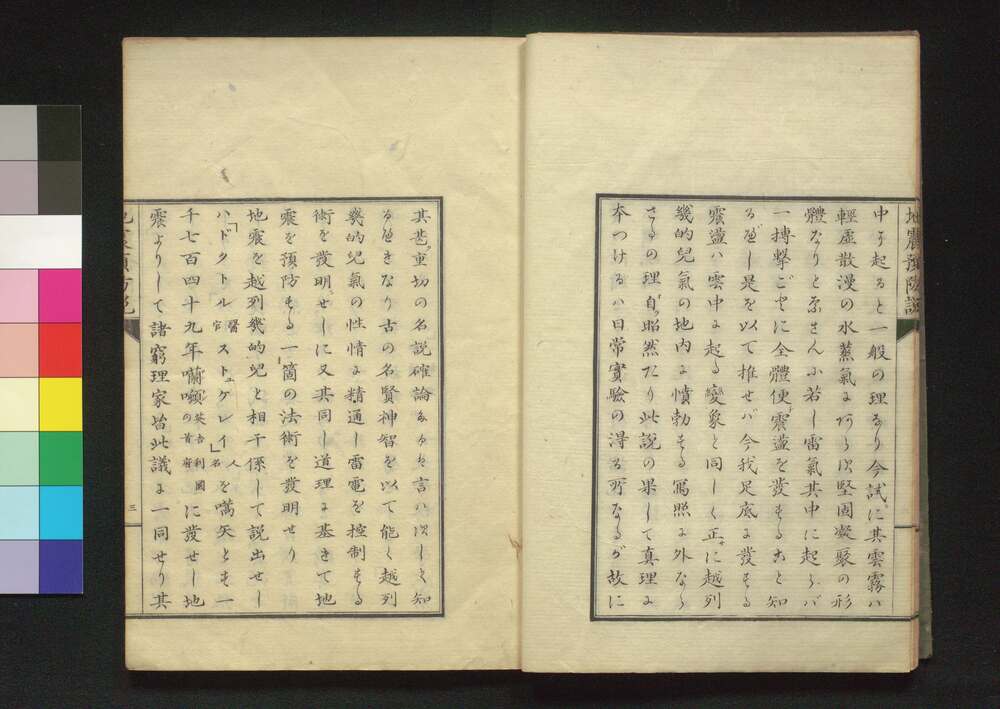 地震預防説
中に起ると一般の理なり今試に其雲霧ハ
輕虚散漫の水蒸氣にあらバ堅固凝聚の形
體なりと爲さんふ若し雷氣其中に起らバ
一搏撃ごとに全體便震盪を發もること知
るべし是を以て推せバ今我足底に發もる
震盪ハ雲中に起る變象と同しく正に越列
幾的兒氣の地内に憤勃もる寫照に外なら
さるの理自照然たり此説の果して真理に
本つけるハ日常實驗の淂る所なるが故に
其甚重切の名説確論なるは言ハずして知
るべきなり古の名賢神智を以て能く越列
幾的兒氣の性情に精通し雷電を控制もる
術を發明せしに又其同し道理に基きて地
震を預防もる一箇の法術を發明せり
地震を越列幾的兒と相干係して説出せし
ハ「ドクトル醫官ストュケレイ」人名を嚆矢とも一
千七百四十九年㘓噸英吉利國の首府に發せし地
震よりして諸窮理家皆此議に一同せり其
地震預防説
三